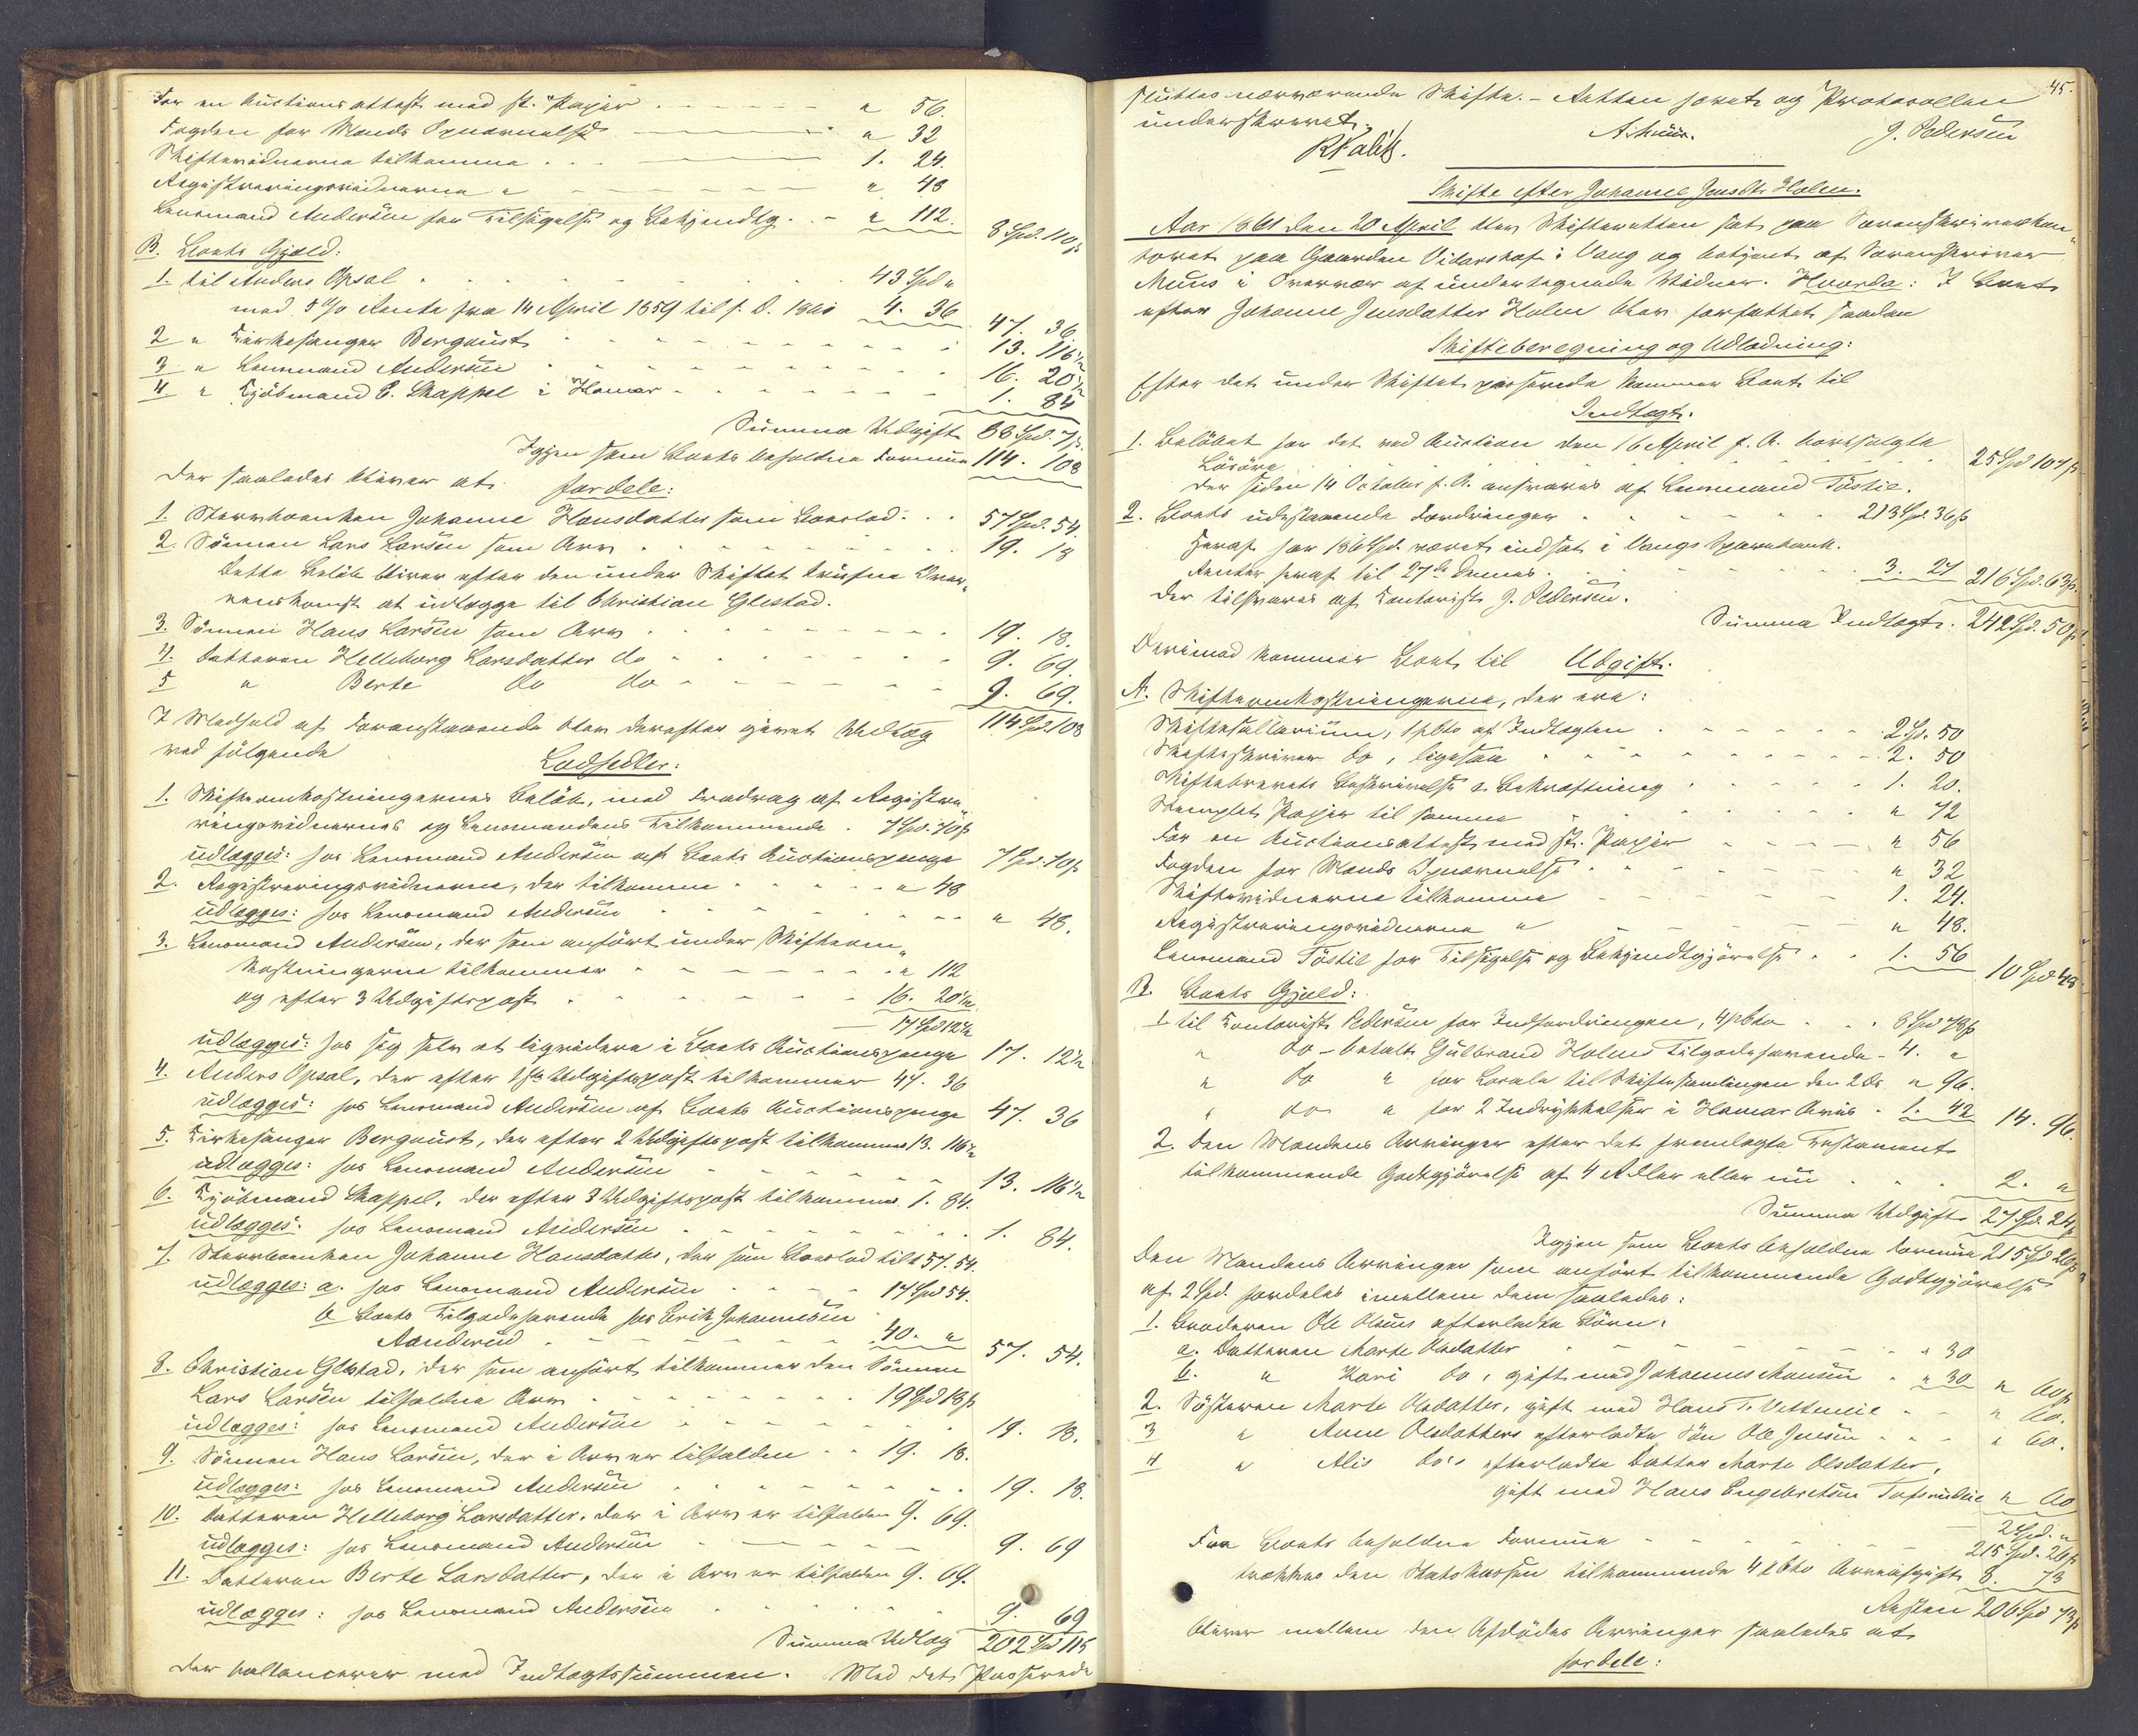 For en Auctionsattest med st. Papir . - - - - - " 56.
Fogden for Mands Opnævnelse - - - " 32
Skiftevidnerne tilkomme . . . - - - 1. 24.
Registreringsvidnerne " - - - - - - " 48
Lensmand Andersen for Tilsigelse og Bekjendtg. . - " 112. 8 Spd. 110 s
B. Boets Gjæld:
1. til Anders Opsal . . . . . . 43 Spd "
med 5 % Rente fra 14 April 1859 til s. D. 1861 4. 36 47. 36
2 " Kirkesanger Bergqust - - - - - - - 13. 116½
3 " Lensmand Andersen - - - - - - - 16. 20½
4 " Kjøbmand C. Skappel i Hamar - - - - - 1. 84
Summa Udgift 88 Spd. 7 s
Igjen som Boets beholdne Formue 114. 108
der saaledes bliver at fordele:
1. Stervboenken Johanne Hansdatter som Boeslod . . . 57 Spd. 54.
2. Sønnen Lars Larsen som Arv . . . . . . 19. 18
Dette Beløb bliver efter den under Skiftet trufne Over-
enskomst at udlægge til Christian Glestad.
3. Sønnen Hans Larsen som Arv . . . . . . 19. 18.
4. Datteren Helleborg Larsdatter do - - - - - 9. 69.
5 " Berte do do - - - - - - 9. 69.
I Medhold af Foranstaaende blev derefter gjort Udlæg 114 Spd. 108
ved følgende Lodsedler:
1. Skifteomkostningernes Beløb, med Fradrag af Registre-
ringsvidnernes og Lensmandens Tilkommende . 7 Spd. 70 s
udlægges: hos Lensmand Andersen af Boets Auctionspenge 7 Spd. 70 s
2. Registreringsvidnerne, der tilkomme . . . . . " 48
udlægges: hos Lensmand Andersen . . . . . " 48.
3. Lensmand Andersen, der som anført under Skifteom-
kostningerne tilkommer - - - - - - " 112
og efter 3 Udgiftspost . . . . . . 16. 20½
17 Spd 12½
udlægges: hos sig selv at liqvidere i Boets Auctionspenge 17. 12½
4. Anders Opsal, der efter 1ste Udgiftspost tilkommer 47. 36
udlægges: hos Lensmand Andersen af Boets Auctionspenge 47. 36
5. Kirkesanger Bergqust, der efter 2 Udgiftspost tilkommer 13. 116½
udlægges: hos Lensmand Andersen . . . . . 13. 116½
6. Kjøbmand Skappel, der efter 3 Udgiftspost tilkommer 1. 84.
udlægges: hos Lensmand Andersen . . . . . 1. 84.
7. Stervboenken Johanne Hansdatter, der som Boeslod tilk 57. 54.
udlægges: a. hos Lensmand Andersen . . . . 17 Spd 54.
b Boets Tilgodehavende hos Erik Johannesen
Aanderud - - - - - 40. " 57. 54.
8. Christian Glestad, der som anført tilkommer den Sønnen
Lars Larsen tilfaldne Arv . . . . . 19 Spd 18 s
udlægges: hos Lensmand Andersen . . . . 19. 18.
9. Sønnen Hans Larsen, der i Arv er tilfalden . . 19. 18.
udlægges: hos Lensmand Andersen . . . . . 19. 18.
10. Datteren Helleborg Larsdatter, der i Arv er tilfalden 9. 69.
udlægges: hos Lensmand Andersen . . . . 9. 69
11. Datteren Berte Larsdatter, der i Arv er tilfalden 9. 69.
udlægges: hos Lensmand Andersen . . . . . 9. 69
Summa Udlæg 202 Spd 115
der ballancerer med Indtægtssummen. Med det Passerede
45.
sluttes nærværende Skifte. - Retten hævet og Protocollen
underskrevet.
A. Muus. J. Pedersen
Skifte efter Johanne Jensdtr Holen.
Aar 1861 den 20 April blev Skifteretten sat paa Sorenskriverkon-
toret paa Gaarden Vidarshof i Vang og betjent af Sorenskriver
Muus i Overvær af undertegnede Vidner. Hvorda: I Boet
efter Johanne Jensdatter Holen blev forfattet saadan
Skifteberegning og Udlodning:
Efter det under Skiftet passerede kommer Boet til
Indtægt.
1. Beløbet for det ved Auction den 16 April f. A. bortsolgte
Løsøre . . . . . . . . 25 Spd 107 s
der siden 14 October f. A. ansvares af Lensmand Tøstie.
2. Boets udestaaende Fordringer . . . . . . 213 Spd. 36 s
heraf har 186 Spd. været indsat i Vangs Sparebank.
Renter heraf til 27de dennes . . . . . 3. 27 216 Spd. 63 s.
der tilsvares af Contorist J. Pedersen.
Summa Indtægt. 242 Spd. 50 s
Derimod kommer Boet til Udgift.
A. Skifteomkostningerne, der ere:
Skiftesallarium, 1 pCto af Indtægten . . . . . 2 Sp. 50
Skifteskriver do, ligesaa . . . . . . 2. 50
Skiftebrevets Beskrivelse & Bekræftning . . . . 1. 20.
Stemplet Papir til samme . . . . . " 72
For en Auctionsattest med st. Papir . . . . " 56
Fogden for Mands Opnævnelse . . . . . " 32
Skiftevidnerne tilkomme - - - - - 1. 24.
Registreringsvidnerne " - - - - - " 48.
Lensmand Tøstie for Tilsigelse og Bekjendtgjørelse . . 1. 56 10 Spd 48
B. Boets Gjæld:
1 til Contorist Pedersen for Indfordringen, 4 pCto . . . 8 Spd 78 s
" do - betalt Gulbrand Holens Tilgodehavende - 4. "
" do " for Locale til Skiftesamlingen den 2 ds " 96.
" do " for 2 Indrykkelser i Hamar Avis . 1. 42 14. 96.
2. Den Mandens Arvinger efter det fremlagte Testament
tilkommende Godtgjørelse af 4 Rdlr eller nu . . . 2. "
Summa Udgift 27 Spd. 24 s
Igjen som Boets beholdne Formue 215 Spd 26 s
Den Mandens Arvinger som anført tilkommende Godtgjørelse
af 2 Spd. fordeles imellem dem saaledes:
1. Broderen Ole Olsens efterladte Børn:
a. Datteren Marte Olsdatter - - - - - - " 30
b. " Kari do, gift med Johannes Monsen . " 30 " 60 s
2. Søsteren Marte Olsdatter, gift med Hans T. Vettenie . - - " 60.
3 " Anne Olsdatters efterladte Søn Ole Jensen . - - " 60.
4 " Alis do's efterladte Datter Marte Olsdatter,
gift med Hans Engebretsen " 60
2 Spd. "
Fra Boets beholdne Formue - - - - - - 215 Spd. 26 s
trækkes den Statskassen tilkommende 4 pCto Arveafgift 8. 73
Resten 206 Spd 73 s
bliver mellem den Afdødes Arvinger saaledes at
fordele: